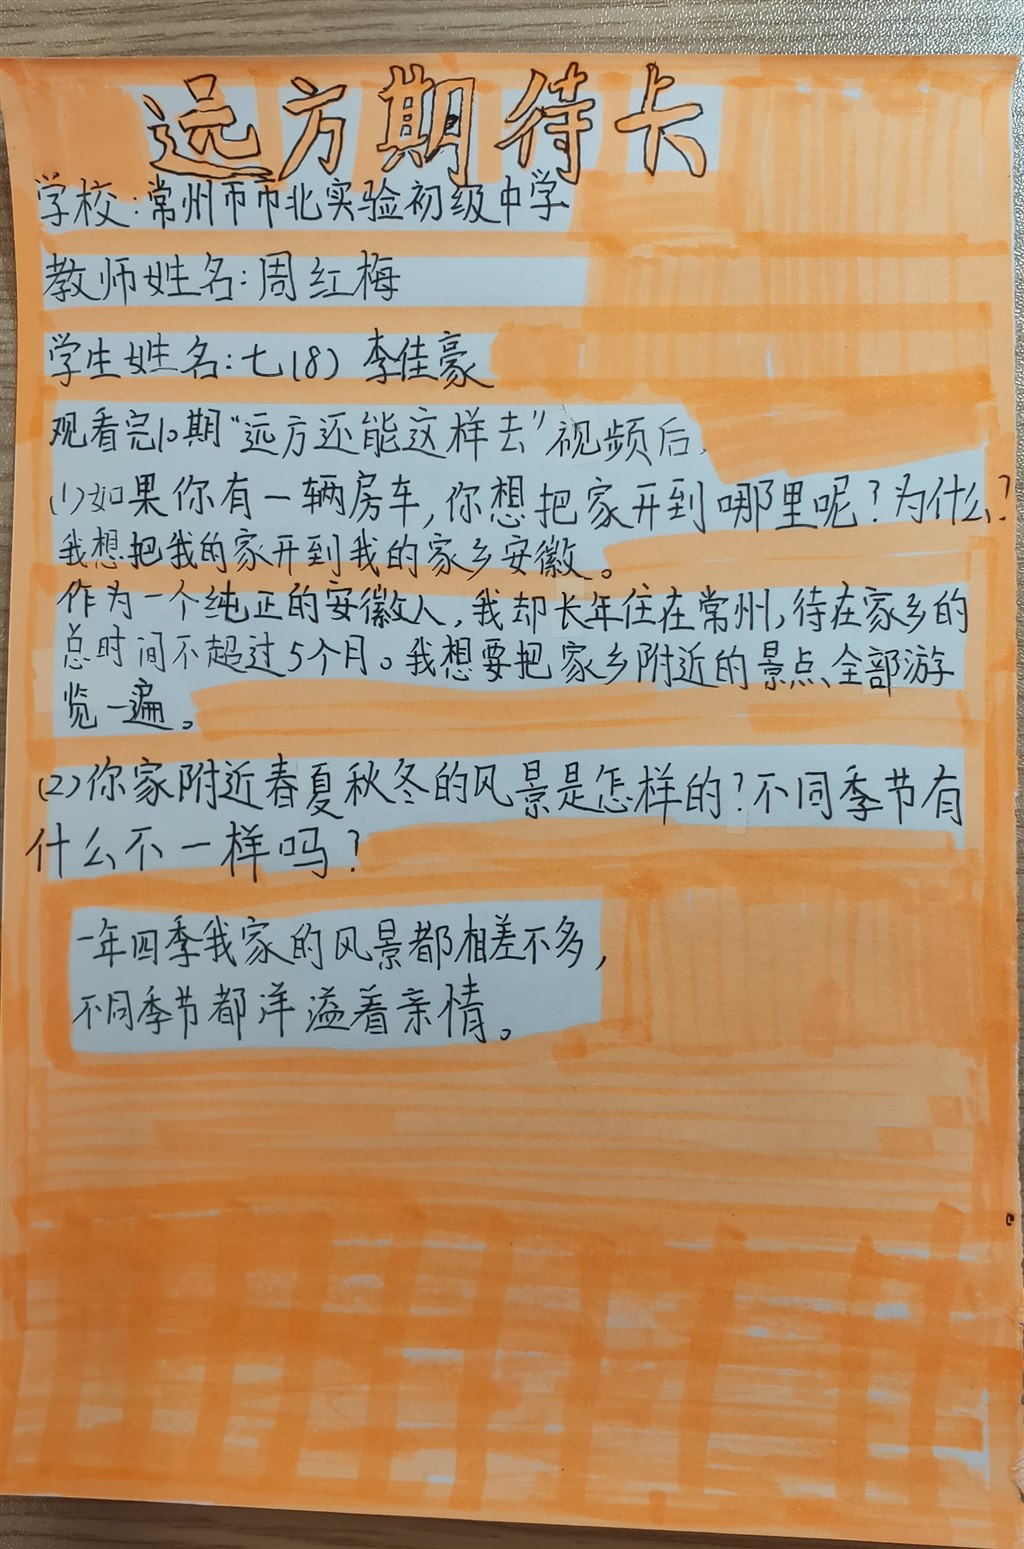 远方期待卡
学校:常州市市北实验初级中学
教师姓名:周红梅
学生姓名:七(8) 李佳豪
观看完10期“远方还能这样去”视频后,
(1)如果你有一辆房车,你想把家开到哪里呢?为什么?
我想把我的家开到我的家乡安徽。
作为一个纯正的安徽人,我却长年住在常州,待在家乡的
总时间不超过5个月。我想要把家乡附近的景点全部游
览一遍。
(2)你家附近春夏秋冬的风景是怎样的?不同季节有
什么不一样吗?
一年四季我家的风景都相差不多,
不同季节都洋溢着亲情。